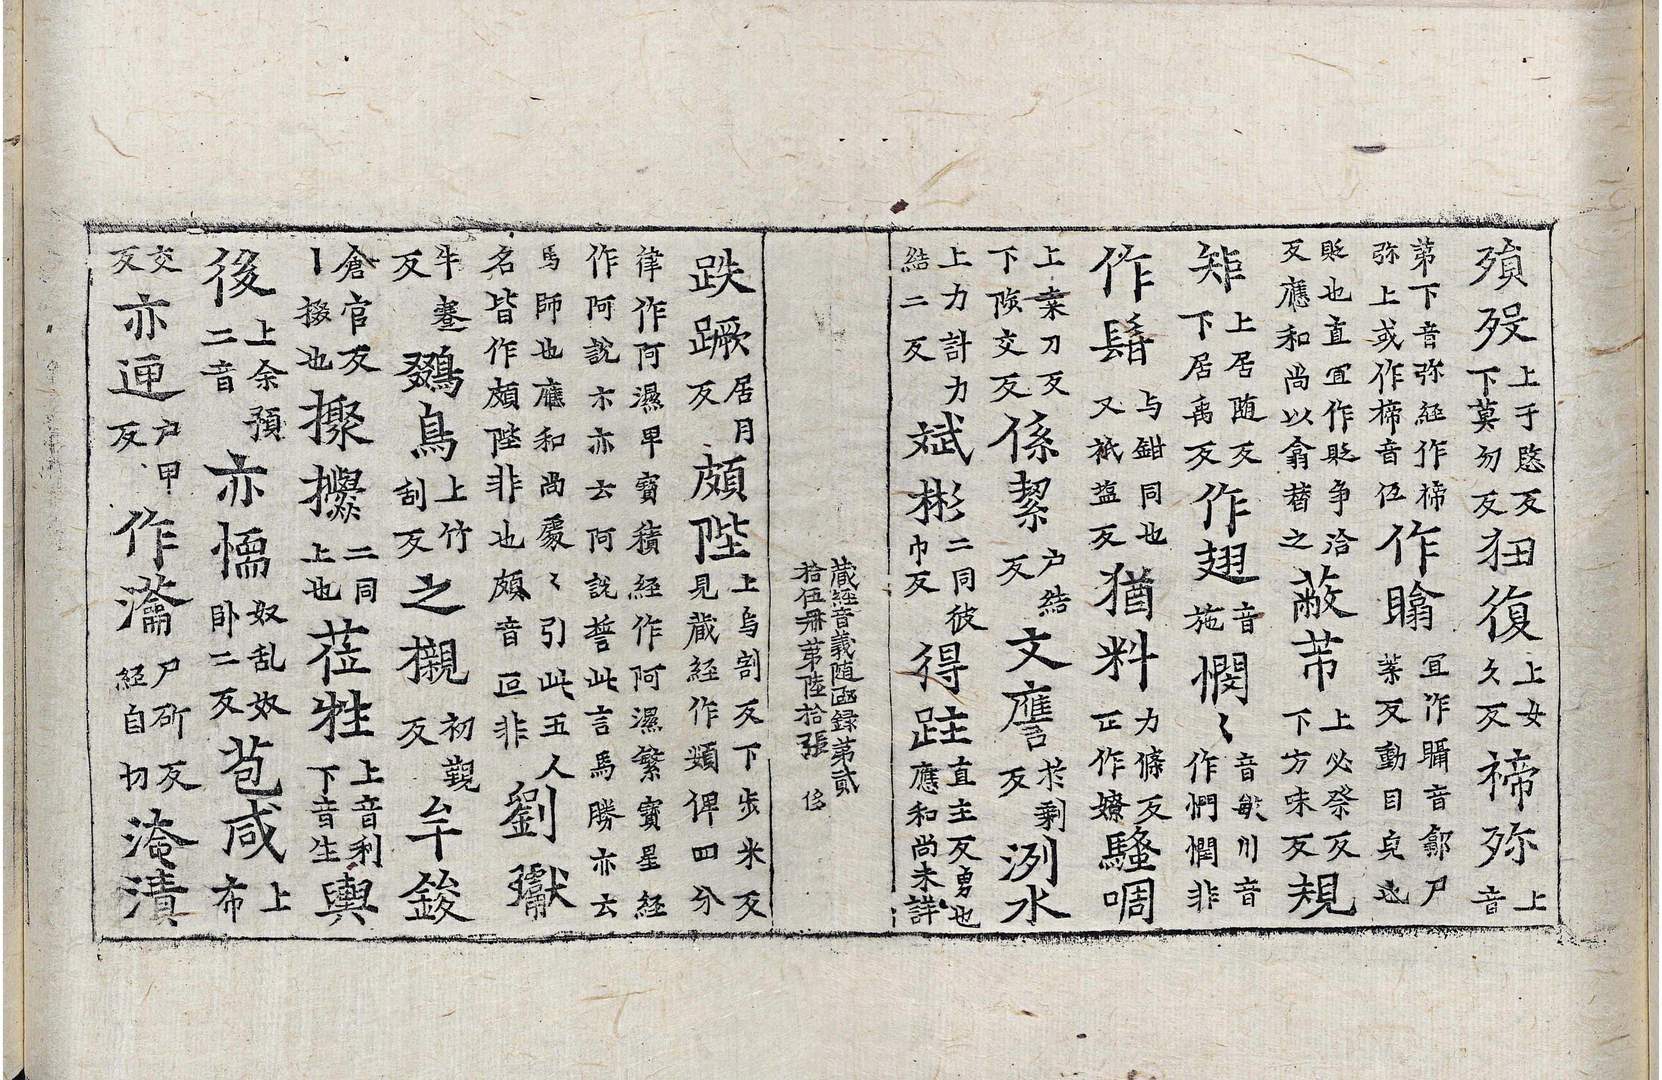 殞歿上于愍反下莫勿反狃復上女久反禘弥上音
第下音弥經作禘弥上或作褅音伍作𥊍冝作聶音鄒尸葉反動目皃也
貶也直冝作貶争洽反應和尚以翕替之蔽芾上必祭反下方味反規
矩上居随反下居禹反作翅音施憫〻音敏川音作惘惘非
作髻与鉗同也又祇塩反猶料力條反正作嫽騷啁
上桒刀反下陟交反係絜户結反文譍於剩反洌水
上力計力結二反斌彬二同彼巾反得跓直主反勇也應和尚未詳
藏經音義随函録第貳拾伍冊苐陸拾張
跌蹶居月反頗陛上烏割反下步米反見蔵經作頞俾四分
律作阿濕卑寳積經作阿濕繁寳星經作阿說示亦云阿說誓此言馬勝亦云
馬師也應和尚䖏〻引此五人名皆作頗陛非也頗音叵非劉㺉
牛蹇反鵽鳥上竹刮反之櫬初覲反牟鋑
倉官反丨掇也㩱攥二同上也莅牲上音利下音生輿
後上余預二音亦懦奴乱奴卧二反苞咸上布
交反亦匣户甲反作瀹尸斫反經自切淹漬